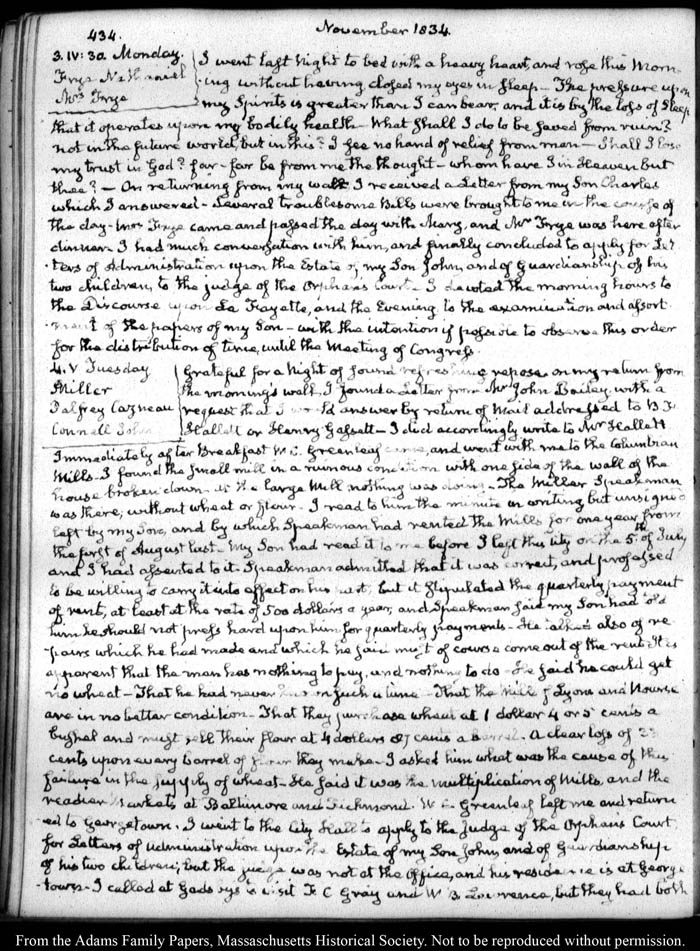 434.
November 1834.
3. IV: 30. Monday.
Frye Nathaniel
Mrs Frye
I went last Night to bed with a heavy heart, and rose this Morn-
ing without having closed my eyes in sleep — The pressure upon
my Spirits is greater than I can bear, and it is by the loss of Sleep
that it operates upon my bodily health — What shall I do to be saved from ruin?
not in the future world, but in this? I see no hand of relief from man — Shall I lose
my trust in God? far - far be from me the thought — whom have I in Heaven but
thee? — On returning from my walk I received a Letter from my Son Charles
which I answered — Several troublesome Bills were brought to me in the course of
the day — Mrs Frye came and passed the day with Mary, and Mr Frye was here after
dinner. I had much conversation with him, and finally concluded to apply for Let-
ters of Administration upon the Estate of my Son John, and of Guardianship of his
two children, to the judge of the Orphans Court. I devoted the morning hours to
the Discourse upon La Fayette, and the Evening to the examination and assort-
ment of the papers of my Son — with the intention if possible to observe this order
for the distribution of time, until the Meeting of Congress.
4. V Tuesday
Miller
Palfrey Cazneau
Connell John
Grateful for a Night of sound refreshing repose, on my return from
the morning's walk, I found a Letter from Mr John Bailey, with a
request that I would answer by return of Mail addressed to B. F.
Hallett or Henry Gassett — I did accordingly write to Mr Hallett.
Immediately after Breakfast W. C. Greenleaf came, and went with me to the Columbian
Mills. I found the small mill in a ruinous condition with one side of the wall of the
house broken down. At the large Mill nothing was doing. The Miller Speakman
was there, without wheat or flour. I read to him the minute in writing but unsigned
left by my Son, and by which Speakman had rented the Mills for one year from
the first of August last. My Son had read it to me before I left this City on the 5th of July
and I had assented to it. Speakman admitted that it was correct, and professed
to be willing to carry it into effect on his part, but it stipulated the quarterly payment
of rent, at least at the rate of 500 dollars a year, and Speakman said my Son had told
him he should not press hard upon him for quarterly payments — He talked also of re-
pairs which he had made and which he said must of course come out of the rent. It is
apparent that the man has nothing to pay, and nothing to do — He said he could get
no wheat — That he had never known such a time — That the Mills of Lyons and Nourse
are in no better condition. That they purchase wheat at 1 dollar 4 or 5 cents a
bushel and must sell their flour at 4 dollars 87 cents a barrel. A clear loss of
cents upon every barrel of flour they make. I asked him what was the cause of this
failure in the supply of wheat. He said it was the multiplication of Mills, and the
readier Markets at Baltimore and Richmond. W. C. Greenleaf left me and return-
ed to Georgetown. I went to the City Hall to apply to the Judge of the Orphans Court
for Letters of Administration upon the Estate of my Son John, and of Guardianship
of his two children; but the judge was not at the office, and his residence is at George-
town. I called at Gadsby's to visit F C Gray and W. B Lawrence, but they had both
From the Adams Family Papers, Massachusetts Historical Society. Not to be reproduced without permission.